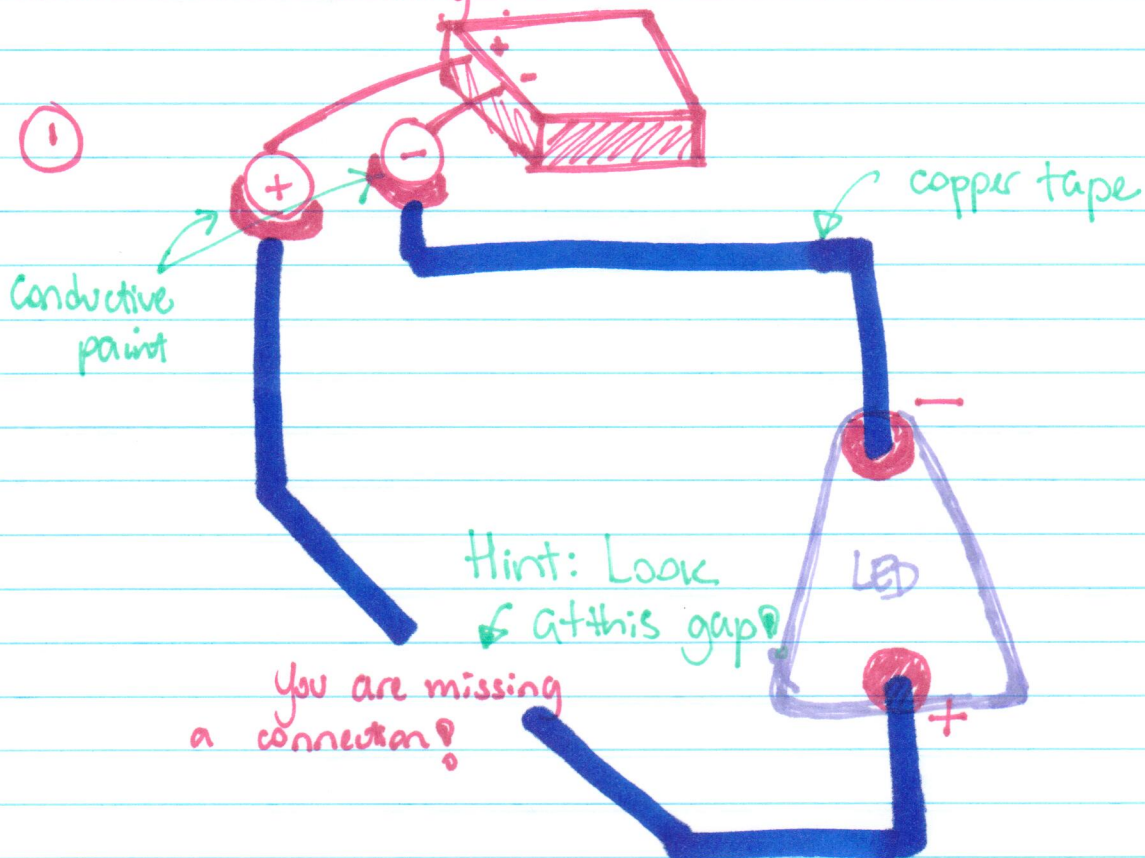 +
-
1
-
+
copper tape
conductive
paint
—
LED
Hint: Look
at this gap!
You are missing
a connection!
+